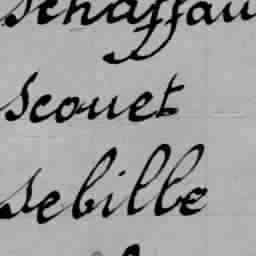 Schaffau
Scouet
Sebille